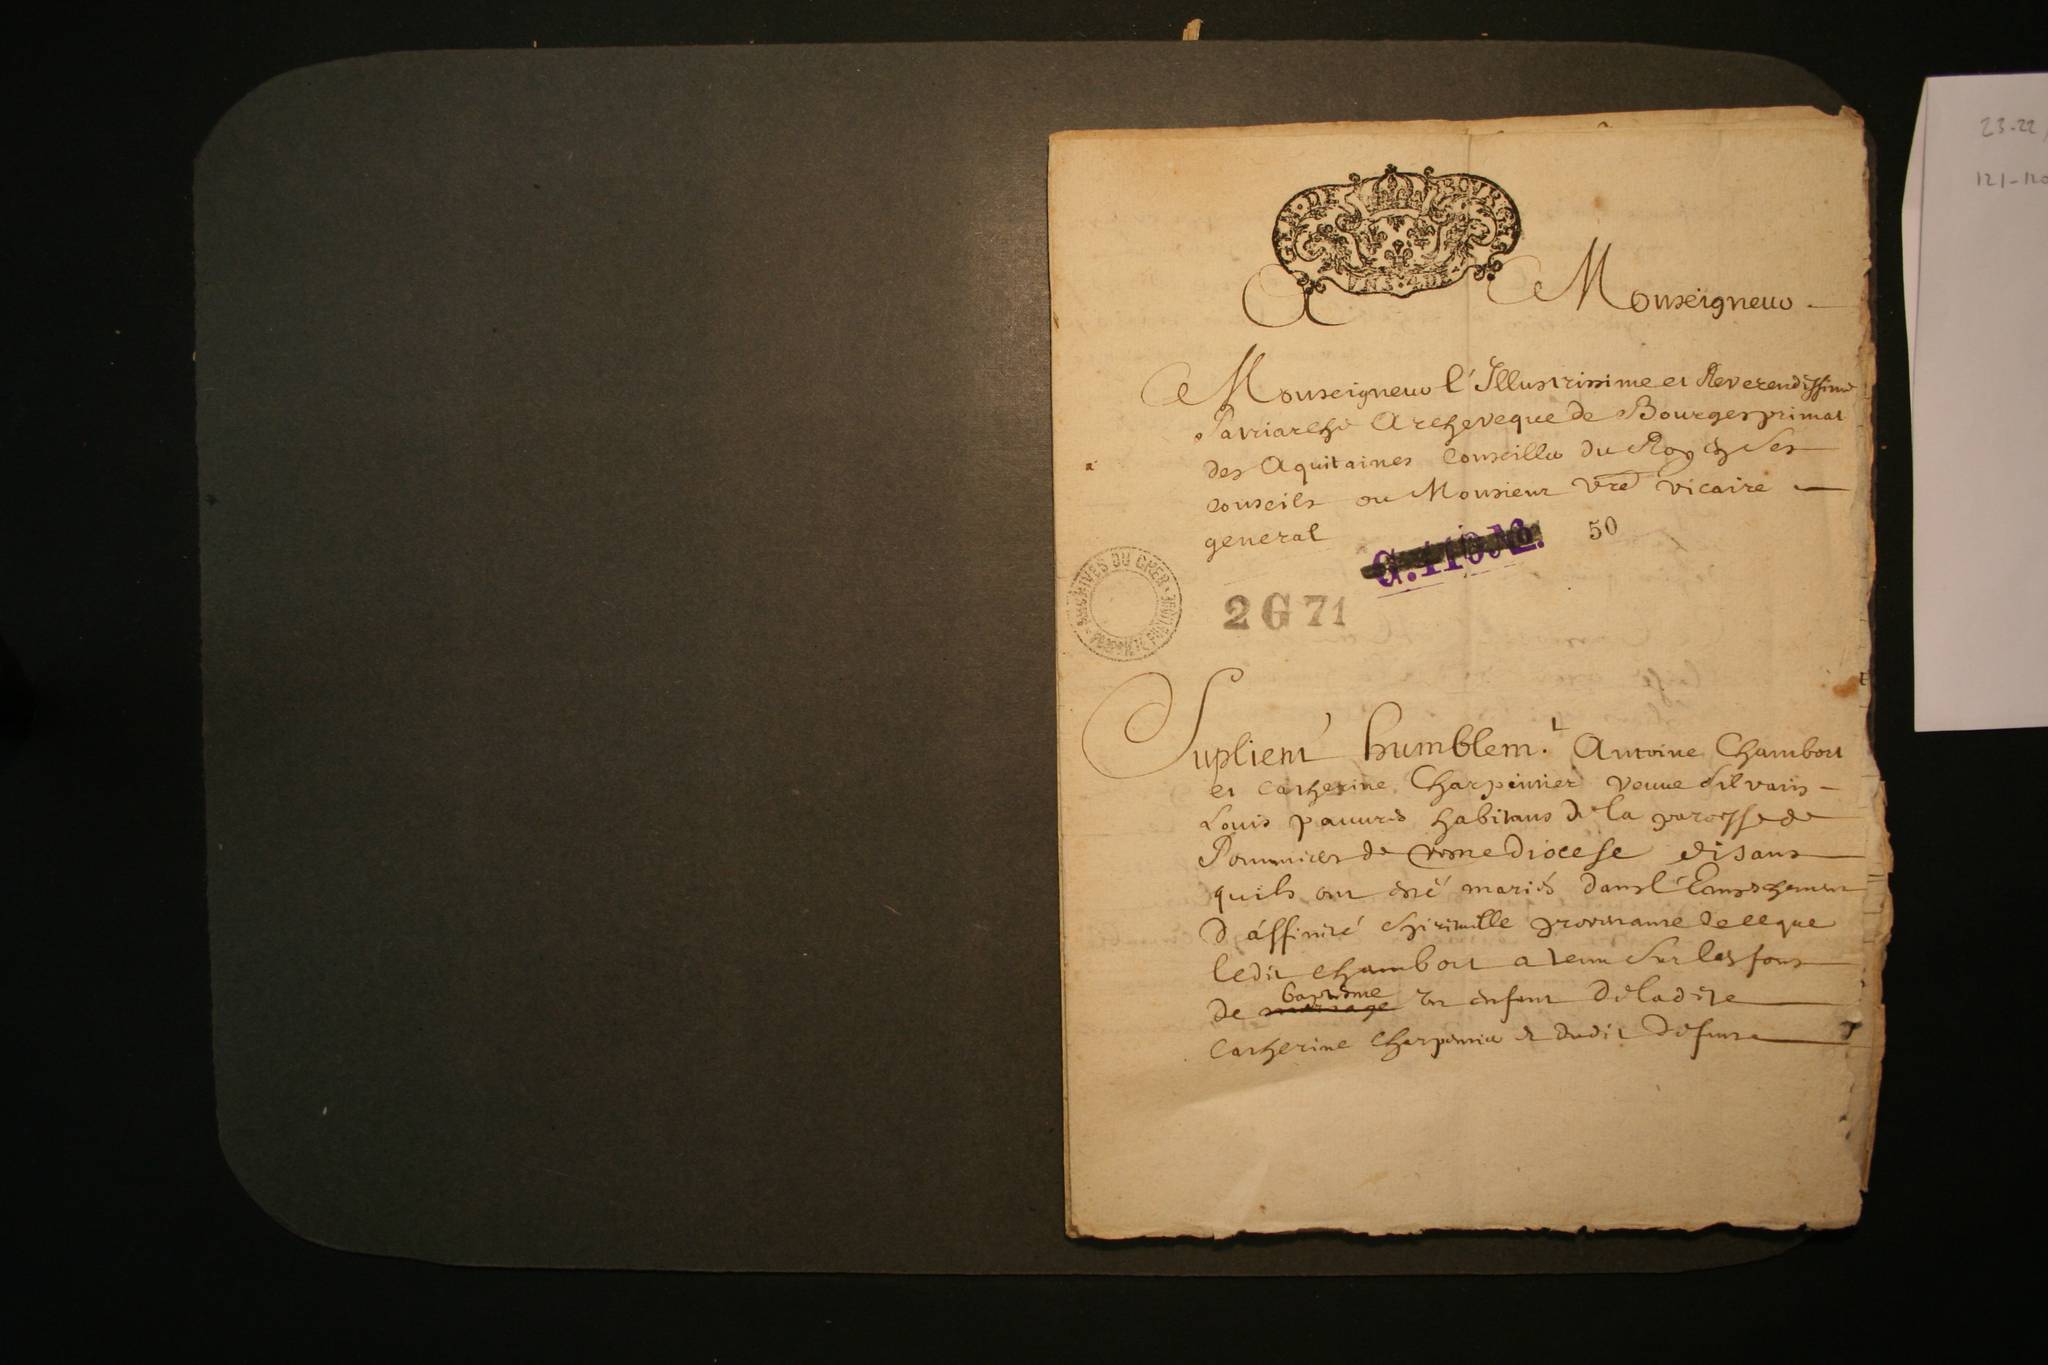 GEN. DE BOVRGES
VN S. 4 D.
23-22
121-120
A Monseigneur
Monseigneur l'Illustrissime et Reverendissime
Patriarche Archeveque de Bourges primat
des Aquitaines Conseiller du Roy en ses
conseils ou Monsieur vre vicaire
general
G. 110
50
ARCHIVES DU CHER
2 G 71
Suplient humblemt. Antoine Chambort
et Catherine Charpentier veuve Silvain
Louis pauvres habitans de la paroisse de
Pommiers de vostre diocese disans
quils ont esté mariés dans l'Empeschement
d'affinité spirituelle provenante de ce que
ledit Chambort a tenu sur les fons
de mariage baptesme un enfant de ladite
Catherine Charpentier et dudit defunt